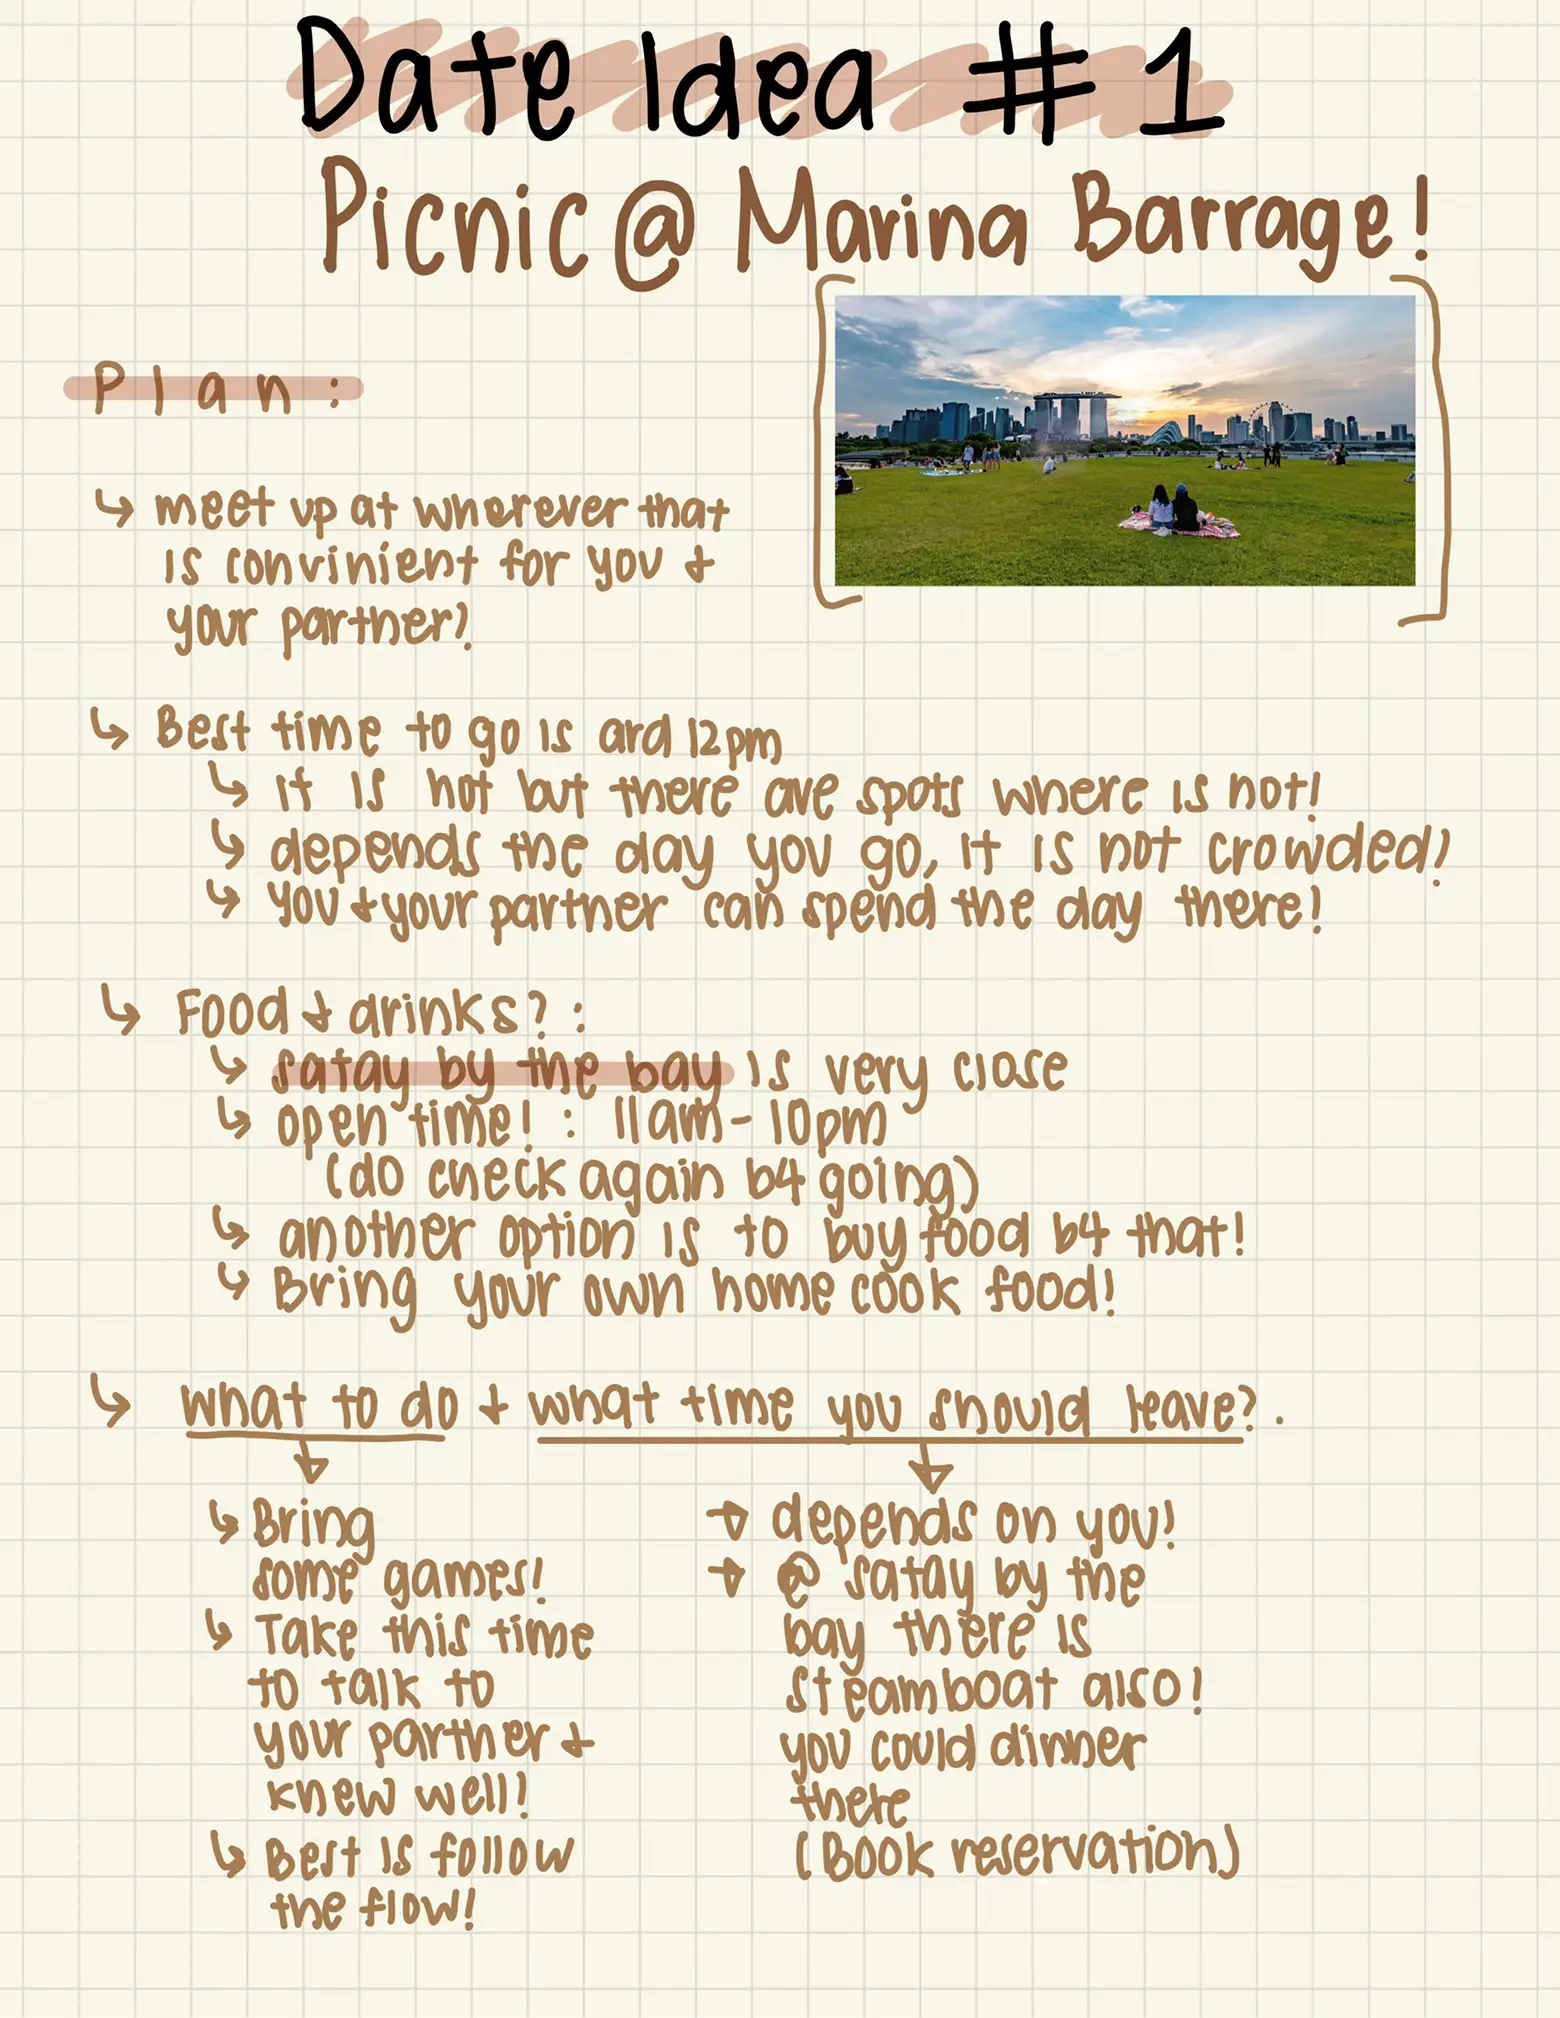 Date Idea #1
Picnic @ Marina Barrage!
Plan:
↳ meet up at wherever that
is convinient for you &
your partner!
↳ Best time to go is ard 12pm
↳ it is hot but there are spots where is not!
↳ depends the day you go, it is not crowded!
↳ you & your partner can spend the day there!
↳ Food & drinks? :
↳ satay by the bay is very close
↳ open time! : 11am - 10pm
(do check again b4 going)
↳ another option is to buy food b4 that!
↳ Bring your own home cook food!
↳ what to do & what time you should leave? .
↳ Bring
some games!
↳ Take this time
to talk to
your partner &
knew well!
↳ Best is follow
the flow!
→ depends on you!
→ @ satay by the
bay there is
steamboat also!
you could dinner
there
(Book reservation)